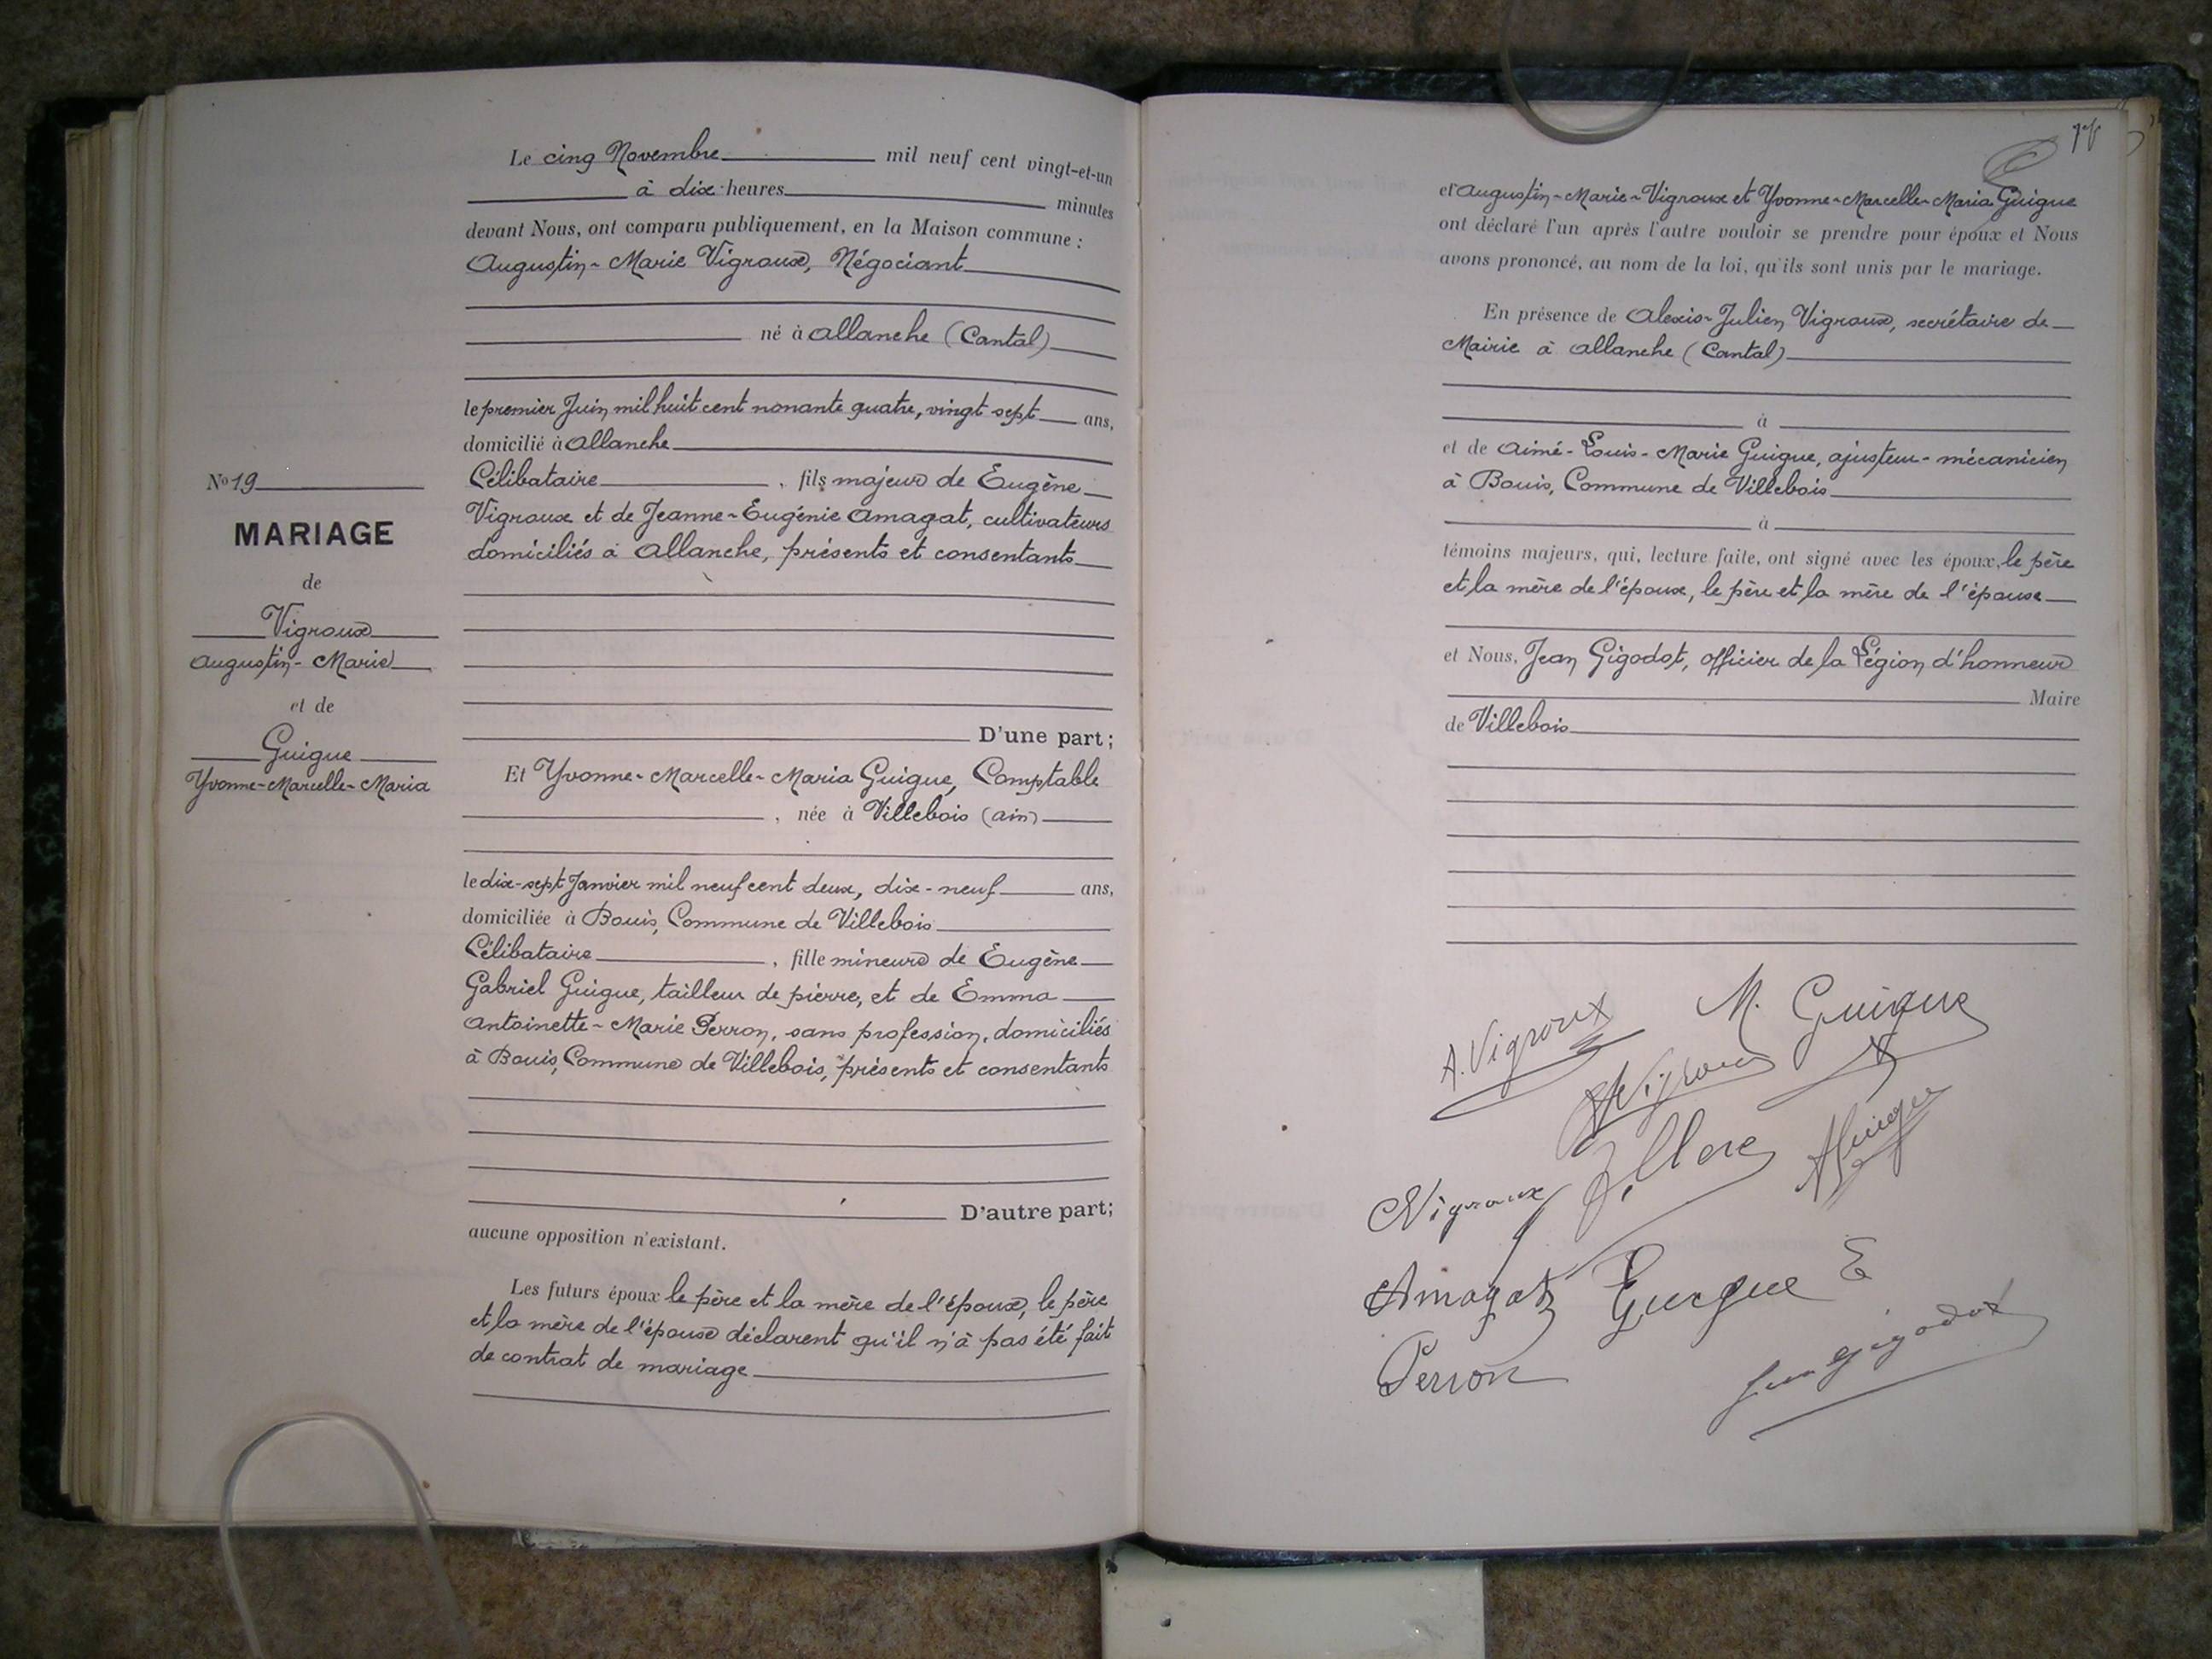 Le cinq Novembre mil neuf cent vingt-et-un
à dix heures minutes
devant Nous, ont comparu publiquement, en la Maison commune :
Augustin-Marie Vigroux, Négociant
né à Allanche (Cantal)
le premier Juin mil huit cent nonante quatre, vingt sept ans,
domicilié à Allanche
Célibataire, fils majeur de Eugène
Vigroux et de Jeanne-Eugénie Amagat, cultivateurs
domiciliés à Allanche, présents et consentants
D'une part;
No 19
MARIAGE
de
Vigroux
Augustin-Marie
et de
Guigue
Yvonne-Marcelle-Maria
Et Yvonne-Marcelle-Maria Guigue, Comptable
, née à Villebois (Ain)
le dix-sept Janvier mil neuf cent deux, dix-neuf ans,
domiciliée à Bouis, Commune de Villebois
Célibataire, fille mineure de Eugène
Gabriel Guigue, tailleur de pierre, et de Emma
Antoinette-Marie Perron, sans profession, domiciliés
à Bouis, Commune de Villebois, présents et consentants
D'autre part;
aucune opposition n'existant.
Les futurs époux le père et la mère de l'époux, le père
et la mère de l'épouse déclarent qu'il n'à pas été fait
de contrat de mariage
et Augustin-Marie-Vigroux et Yvonne-Marcelle-Maria Guigue
ont déclaré l'un après l'autre vouloir se prendre pour époux et Nous
avons prononcé, au nom de la loi, qu'ils sont unis par le mariage.
En présence de Alexis-Julien Vigroux, secrétaire de
Mairie à Allanche (Cantal)
à
et de Aimé-Louis-Marie Guigue, ajusteur-mécanicien
à Bouis, Commune de Villebois
à
témoins majeurs, qui, lecture faite, ont signé avec les époux, le père
et la mère de l'époux, le père et la mère de l'épouse
et Nous, Jean Gigodot, officier de la Légion d'honneur
Maire
de Villebois
A. Vigroux
M. Guigue
Vigroux
AGuigue
Vigroux
Amagat
Guigue E
Perron
Jean Gigodot